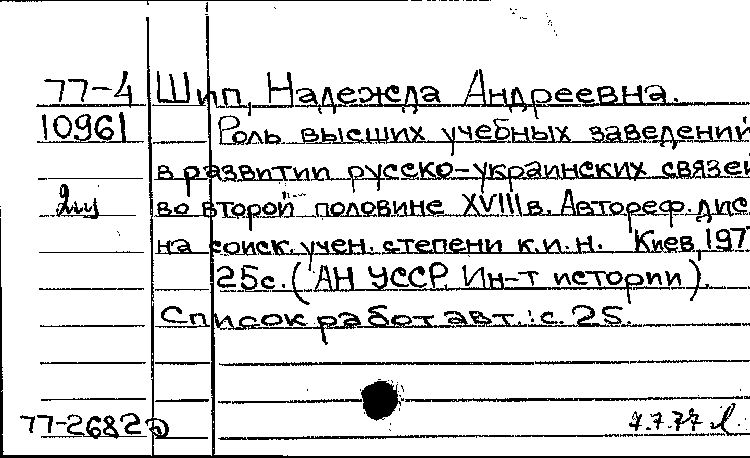 77-4 Шип, Надежда Андреевна.
10961 Роль высших учебных заведений
в развитии русско-украинских связей
2ш во второй половине XVIII в. Автореф. дис
на соиск. учен. степени к.и.н. Киев, 197
25с. (АН УССР. Ин-т истории).
Список работ авт.: с. 25.
77-2682 7.7.77